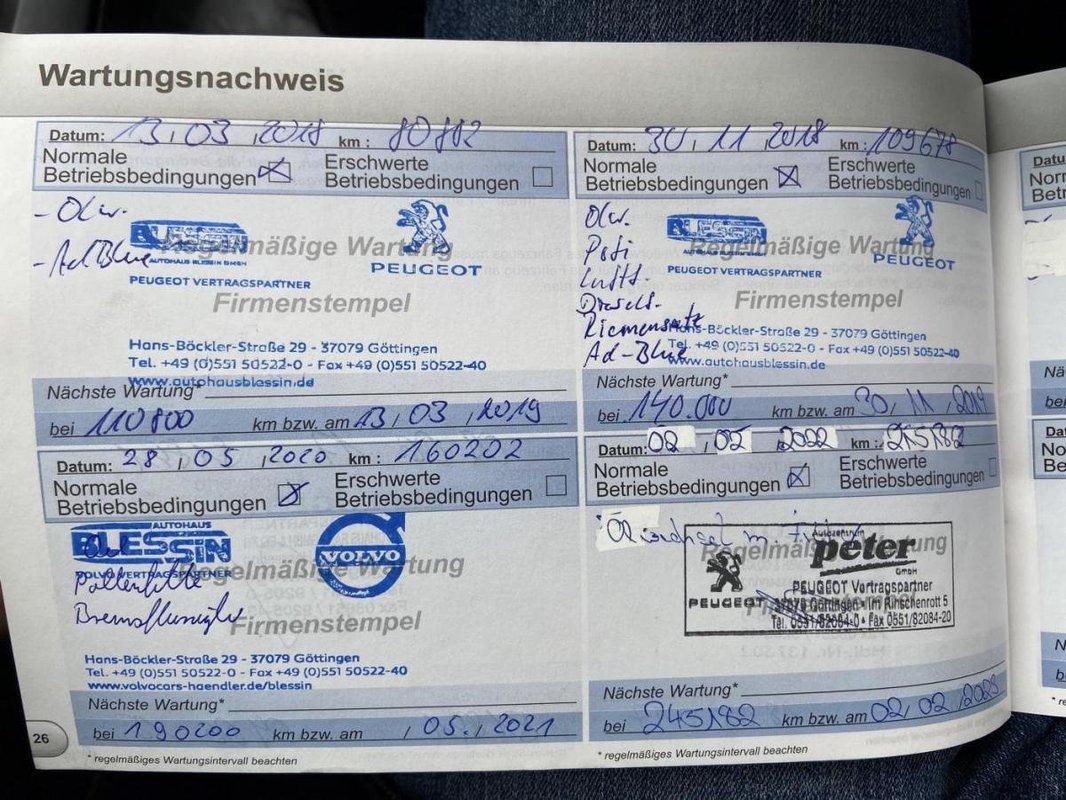 Wartungsnachweis
Datum: 13.03.2018 km: 80882
Normale
Betriebsbedingungen
Erschwerte
Betriebsbedingungen
- Ölw.
- Ad Blue
BLESSIN
AUTOHAUS BLESSIN GMBH
PEUGEOT VERTRAGSPARTNER
PEUGEOT
Regelmäßige Wartung
Firmenstempel
Hans-Böckler-Straße 29 - 37079 Göttingen
Tel. +49 (0)551 50522-0 - Fax +49 (0)551 50522-40
www.autohausblessin.de
Nächste Wartung*
bei 110800 km bzw. am 13/03/2019
Datum: 30.11.2018 km: 109678
Normale
Betriebsbedingungen
Erschwerte
Betriebsbedingungen
Ölw.
Luftf.
Dieself.
Riemensatz
Ad-Blue
BLESSIN
PEUGEOT VERTRAGSPARTNER
PEUGEOT
Regelmäßige Wartung
Firmenstempel
Hans-Böckler-Straße 29 - 37079 Göttingen
Tel. +49 (0)551 50522-0 - Fax +49 (0)551 50522-40
www.autohausblessin.de
Nächste Wartung*
bei 140.000 km bzw. am 30/11/2019
Datum: 28.05.2020 km: 160202
Normale
Betriebsbedingungen
Erschwerte
Betriebsbedingungen
AUTOHAUS
BLESSIN
VOLVO VERTRAGSPARTNER
VOLVO
Pollenfilter
Regelmäßige Wartung
Firmenstempel
Hans-Böckler-Straße 29 - 37079 Göttingen
Tel. +49 (0)551 50522-0 - Fax +49 (0)551 50522-40
www.volvocars-haendler.de/blessin
Nächste Wartung*
bei 190200 km bzw. am /05.2021
* regelmäßiges Wartungsintervall beachten
26
Datum: 02.02.2022 km: 215182
Normale
Betriebsbedingungen
Erschwerte
Betriebsbedingungen
Ölwechsel m. Filter
Regelmäßige Wartung
Firmenstempel
Autozentrum
peter
GmbH
PEUGEOT
PEUGEOT Vertragspartner
37079 Göttingen • Im Rinschenrott 5
Tel. 0551/82084-0 • Fax 0551/82084-20
Nächste Wartung*
bei 245182 km bzw. am 02/02/2023
* regelmäßiges Wartungsintervall beachten